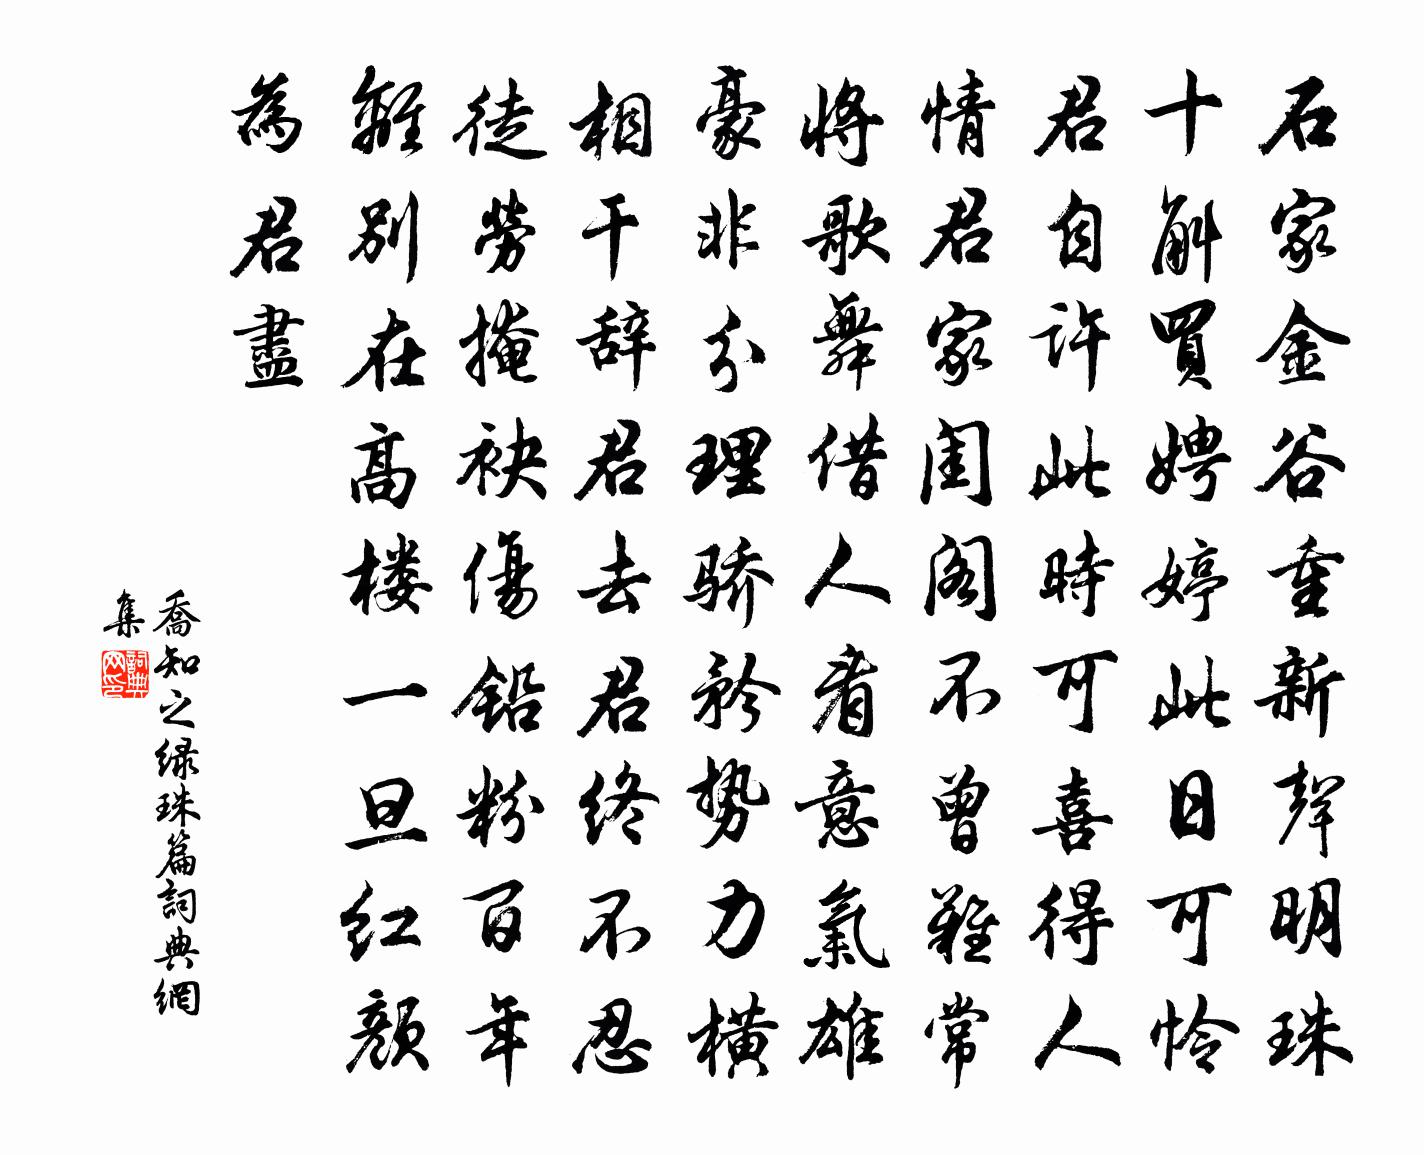 石家金谷重新聲明珠
十斛買娉婷此日可怜
君自許此時可喜得人
情君家闺阁不曾難常
將歌舞借人看意氣雄
豪非分理骄矜势力横
相干辞君去君终不忍
徒勞掩袂傷铅粉百年
離別在高楼一旦红颜
為君盡
喬知之绿珠篇詞典網
集
詞典
网印